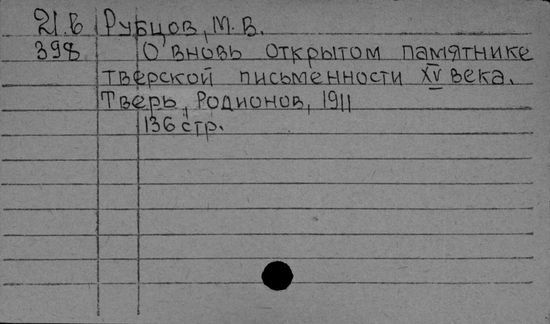 21.Б Рубцов, М. В.
398 О вновь открытом памятнике
тверской письменности XV века.
Тверь, Родионов, 1911
136 стр.